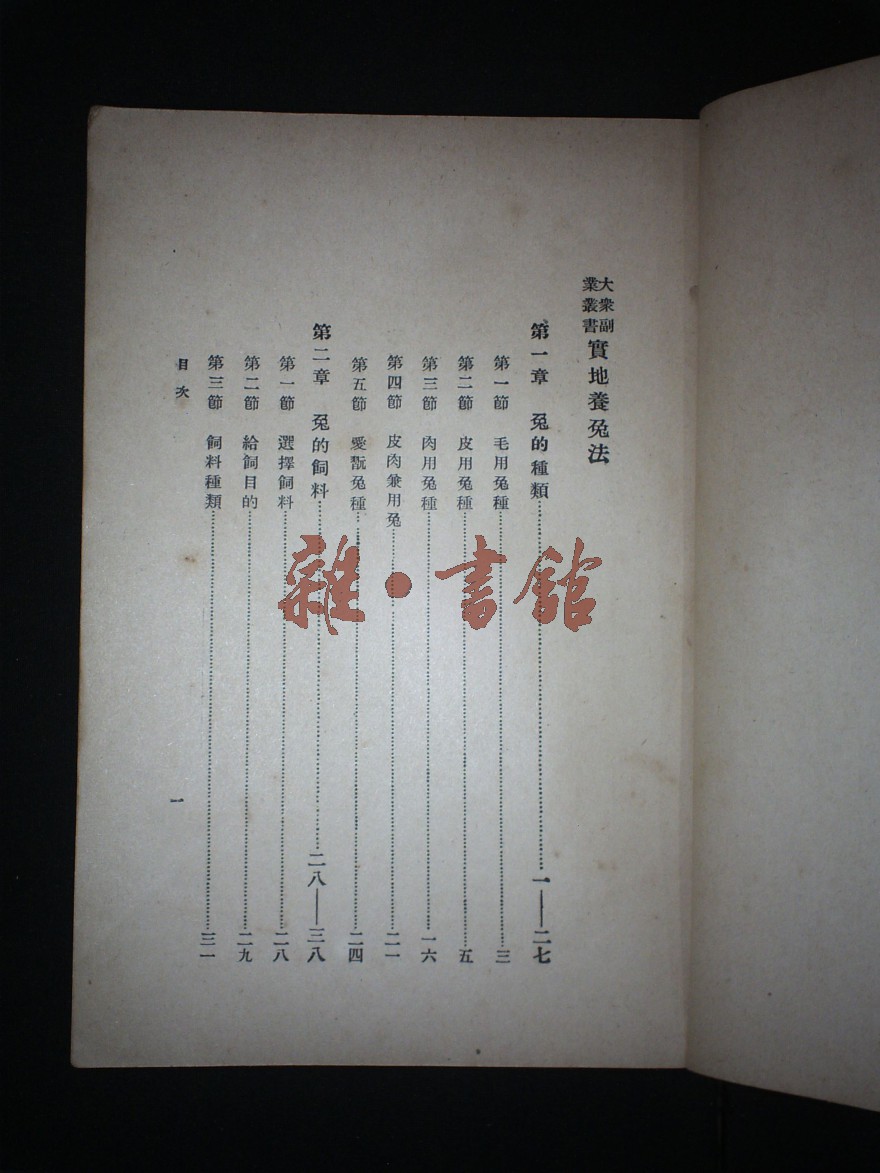 大衆副業叢書 實地養兔法
第一章 兔的種類 一——二七
第一節 毛用兔種 三
第二節 皮用兔種 五
第三節 肉用兔種 一六
第四節 皮肉兼用兔 二一
第五節 愛翫兔種 二四
第二章 兔的飼料 二八——三八
第一節 選擇飼料 二八
第二節 給飼目的 二九
第三節 飼料種類 三一
目次
一
雜·書館